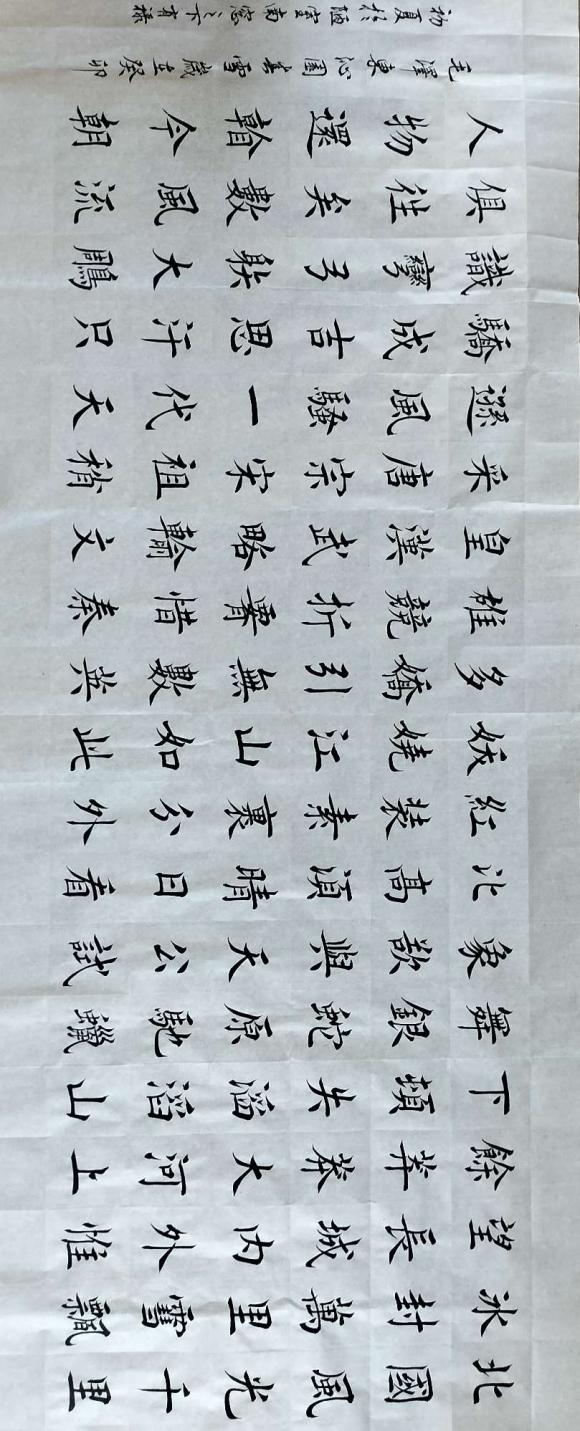 北國風光千里
冰封萬里雪飄
望長城内外惟
餘莽莽大河上
下頓失滔滔山
舞銀蛇原馳蠟
象欲與天公試
比高須晴日看
紅裝素裹分外
妖嬈江山如此
多嬌引無數英
雄競折霸惜秦
皇漢武略輸文
采唐宗宋祖稍
遜風騷一代天
驕成吉思汗只
識彎弓射大鵰
俱往矣數風流
人物還看今朝
毛澤東沁園春雪歲在癸卯
初夏於陋室南窓之下有祿